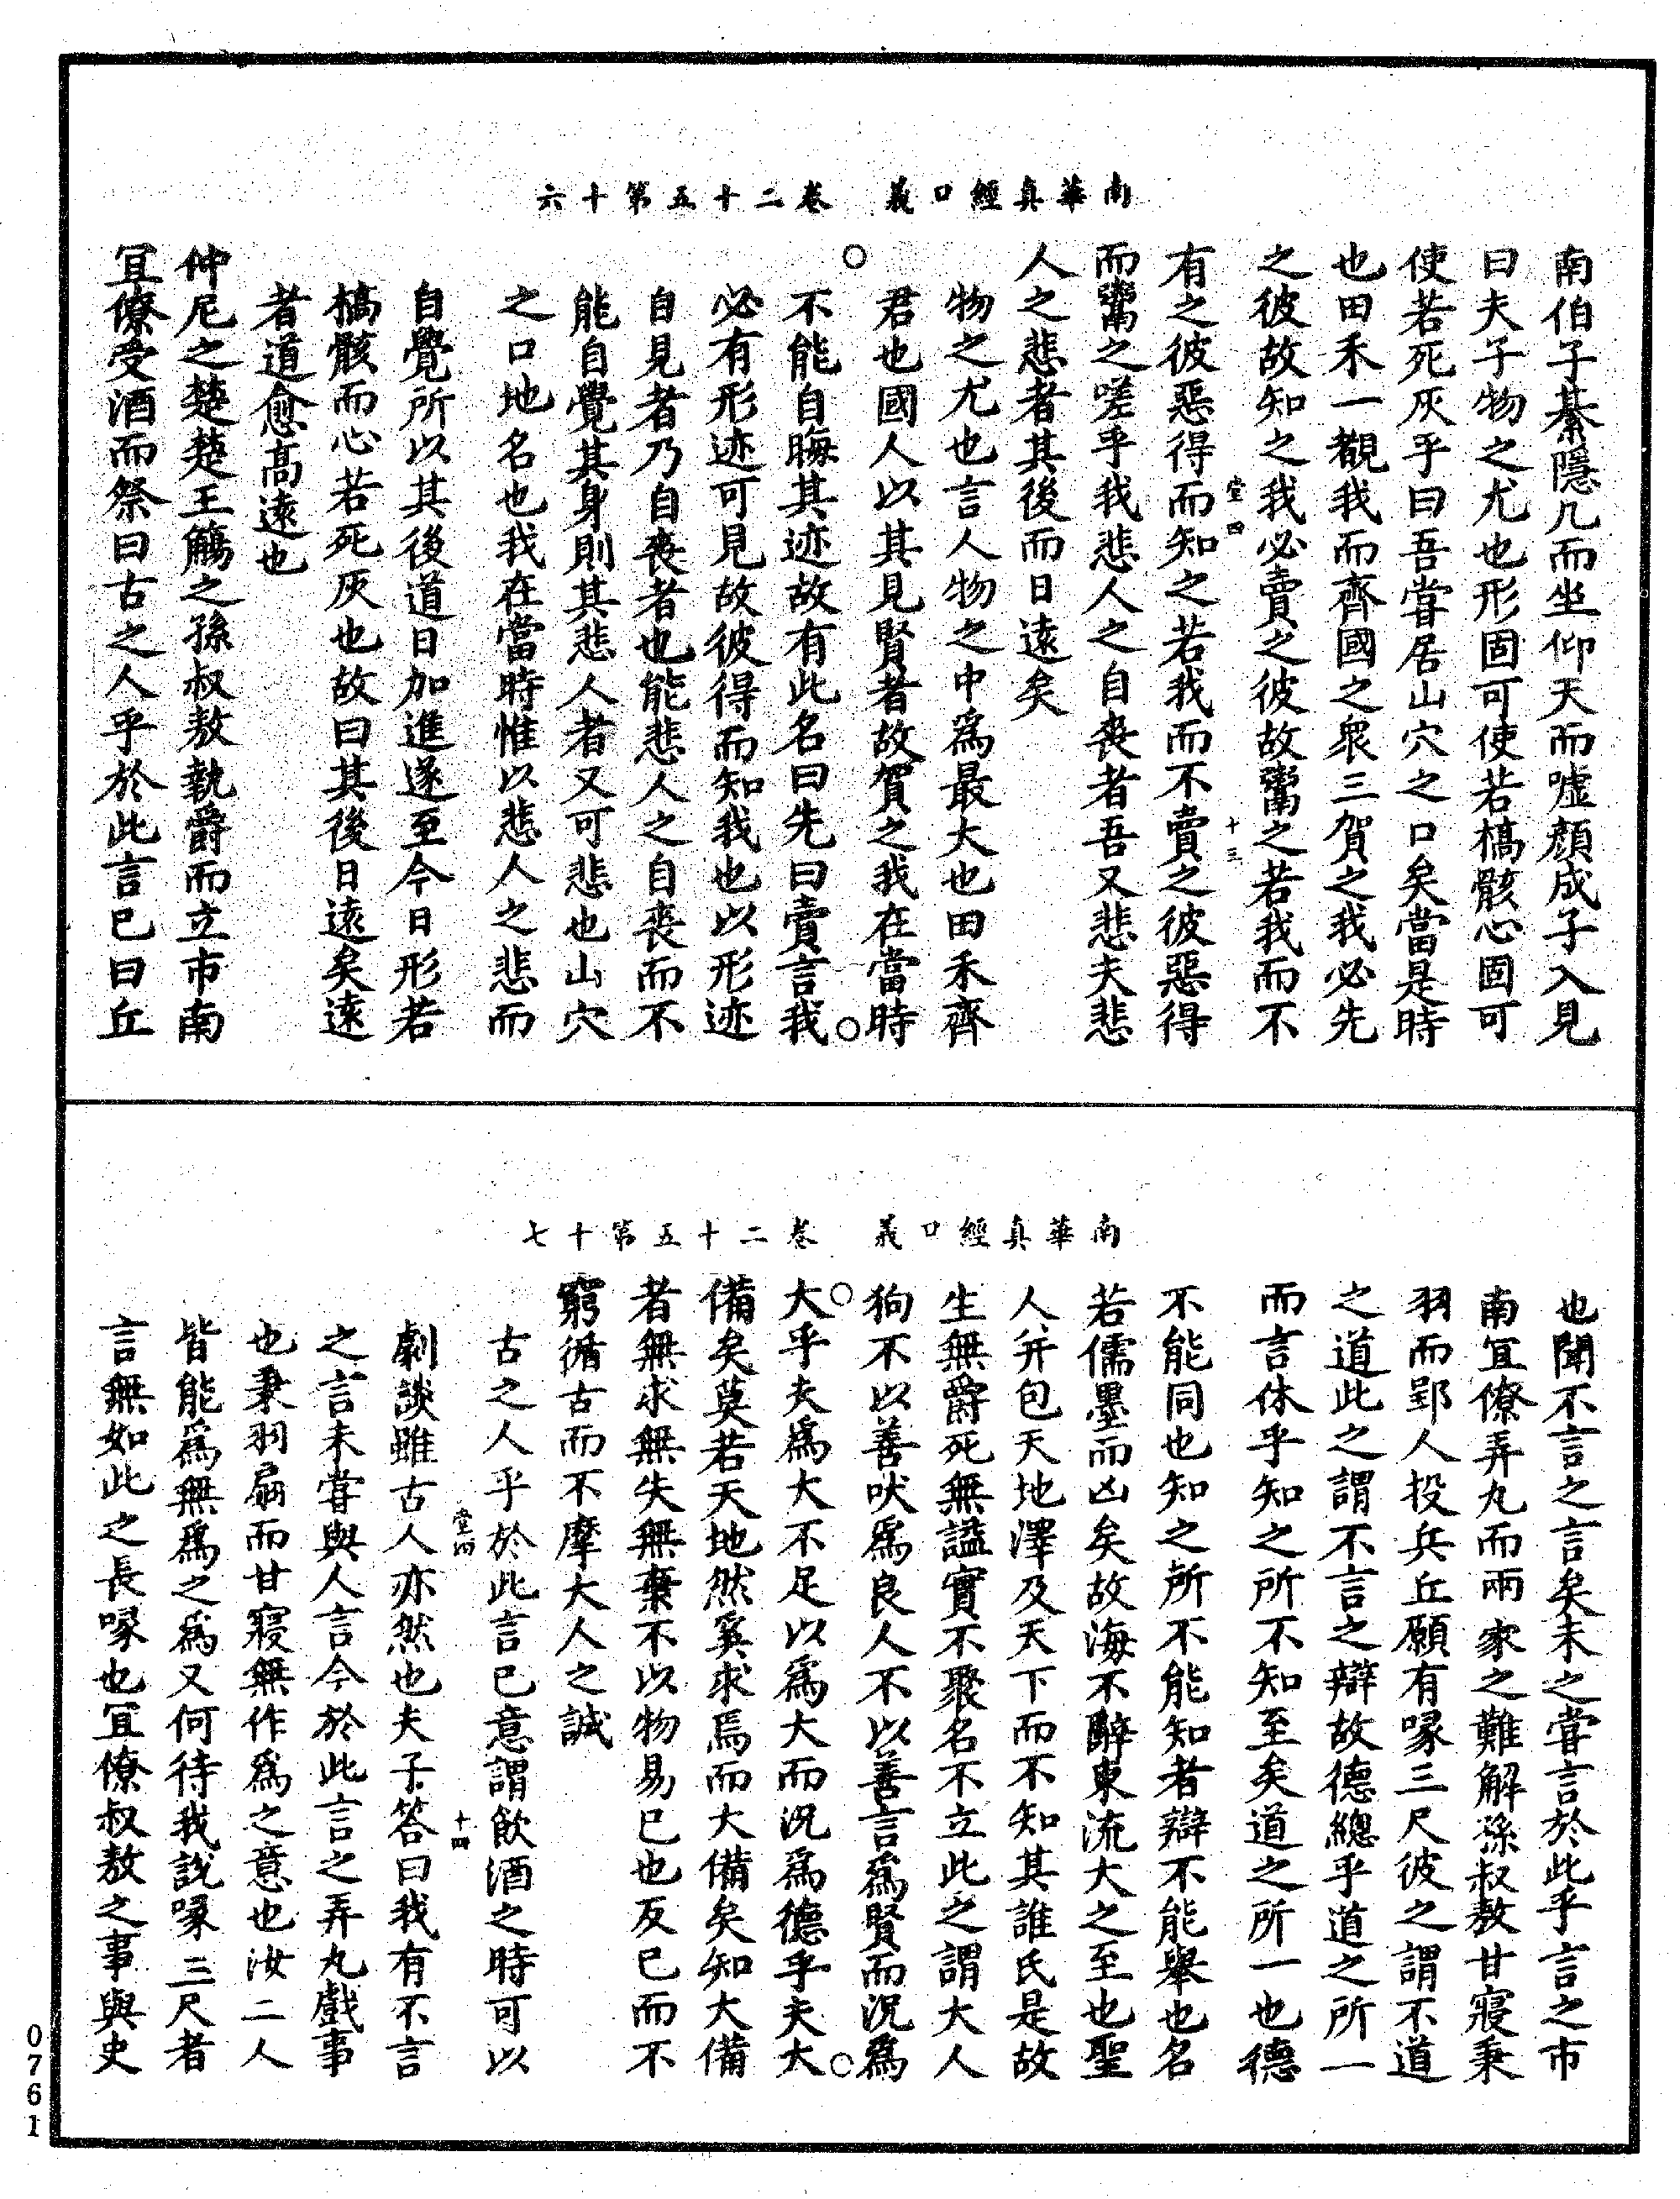 南華真經口義　卷二十五第十六
南伯子綦隱几而坐仰天而噓顏成子入見
曰夫子物之尤也形固可使若槁骸心固可
使若死灰乎曰吾嘗居山穴之口矣當是時
也田禾一覩我而齊國之眾三賀之我必先
之彼故知之我必賣之彼故鬻之若我而不
堂四　十三
有之彼惡得而知之若我而不賣之彼惡得
而鬻之嗟乎我悲人之自喪者吾又悲夫悲
人之悲者其後而日遠矣
物之尤也言人物之中為最大也田禾齊
君也國人以其見賢者故賀之我在當時
不能自晦其迹故有此名曰先曰賣言我
必有形迹可見故彼得而知我也以形迹
自見者乃自喪者也能悲人之自喪而不
能自覺其身則其悲人者又可悲也山穴
之口地名也我在當時惟以悲人之悲而
自覺所以其後道日加進遂至今日形若
槁骸而心若死灰也故曰其後日遠矣遠
者道愈高遠也
仲尼之楚楚王觴之孫叔敖執爵而立市南
宜僚受酒而祭曰古之人乎於此言已曰丘
南華真經口義　卷二十五第十七
也聞不言之言矣未之嘗言於此乎言之市
南宜僚弄丸而兩家之難解孫叔敖甘寢秉
羽而郢人投兵丘願有喙三尺彼之謂不道
之道此之謂不言之辯故德總乎道之所一
而言休乎知之所不知至矣道之所一也德
不能同也知之所不能知者辯不能舉也名
若儒墨而凶矣故海不辭東流大之至也聖
人并包天地澤及天下而不知其誰氏是故
生無爵死無謚實不聚名不立此之謂大人
狗不以善吠為良人不以善言為賢而況為
大乎夫為大不足以為大而況為德乎夫大
備矣莫若天地然奚求焉而大備矣知大備
者無求無失無棄不以物易已也反已而不
窮循古而不摩大人之誠
古之人乎於此言已意謂飲酒之時可以
堂四　十四
劇談雖古人亦然也夫子答曰我有不言
之言未嘗與人言今於此言之弄丸戲事
也秉羽扇而甘寢無作為之意也汝二人
皆能為無為之為又何待我說喙三尺者
言無如此之長喙也宜僚叔敖之事與史
0761